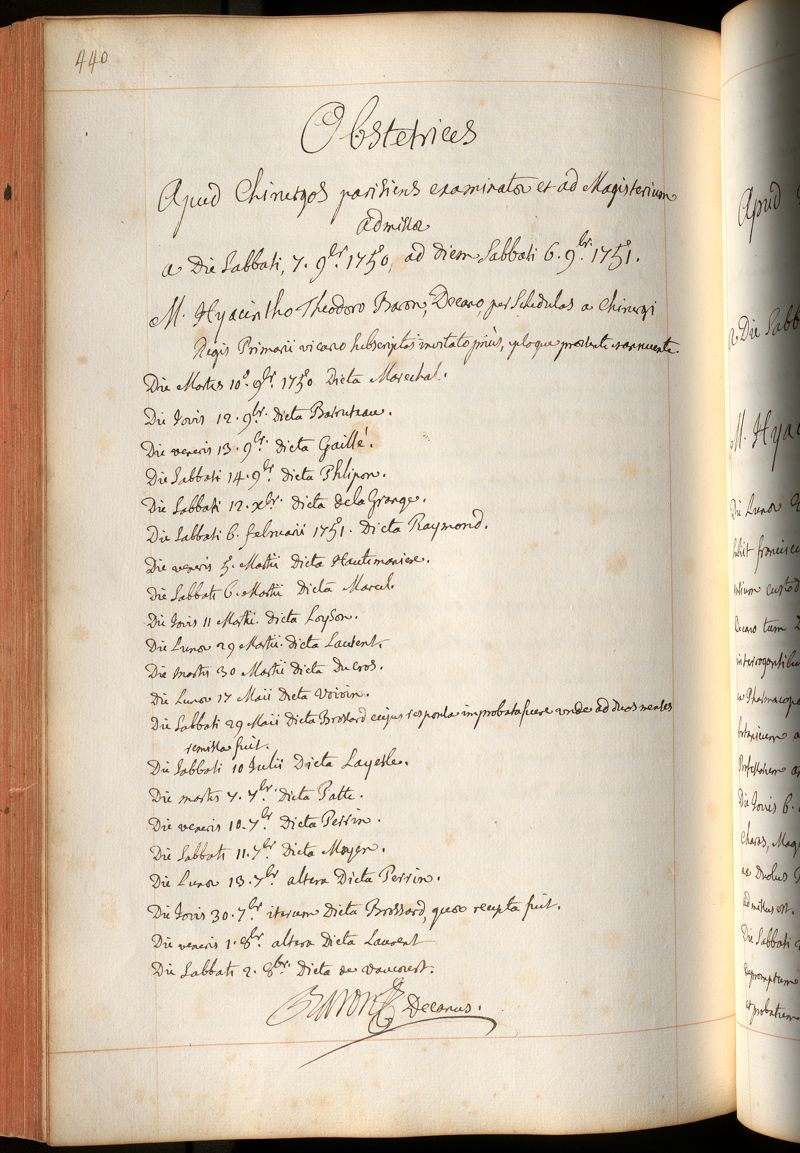 440
Obstetrices
Apud Chirurgos parisiens examinatæ et ad Magisterium
admissæ
a Die Sabbati, 7. 9bris 1750, ad diem Sabbati 6. 9bris 1751.
M. Hyacintho Theodoro Baron, Decano, per Schedulas a Chirurgi
Regis Primarii vicario subscriptas invitato priùs, ipsoque præsente et annuente.
Die Martis 10ª 9bris 1750 Dicta Marechal.
Die Jovis 12. 9bris. Dicta Bairuteau.
Die veneris 13. 9bris. dicta Gaillé.
Die Sabbati 14. 9bris dicta Phlipon.
Die Sabbati 12. xbris. dicta de la Grange.
Die Sabbati 6. februarii 1751. Dicta Raymond.
Die veneris 5. Martii dicta Hautemaniere.
Die Sabbati 6. Martii Dicta Marcel.
Die Jovis 11 Martii. dicta Loyson.
Die Lunæ 29 Martii. dicta Laurent.
Die martis 30 Martii dicta Ducros.
Die Lunæ 17 Maii Dicta Voivin.
Die Sabbati 29 Maii Dicta Brossard cujus responsa improbata fuere unde ad duos menses
remissa fuit.
Die Sabbati 10 Julii Dicta Layesle.
Die martis 7. 7bris. Dicta Patte.
Die veneris 10. 7bris. Dicta Perrin.
Die Sabbati 11. 7bris Dicta Moyen.
Die Lunæ 13. 7bris altera Dicta Perrin.
Die Jovis 30. 7bris iterum Dicta Brossard, quæ recepta fuit.
Die veneris 1. 8bris. altera dicta Laurent
Die Sabbati 2. 8bris. Dicta de Vaucourt.
Baron Decanus.
Apud
a Die Sabb
M. Hyac
Die Lunæ
habit francisc
custod
Decano tum
interrogantibus
a Pharmacop
Professorum
Die Jovis 6.
Charas, Mag
admissus est.
Die Sabbati
et probatum